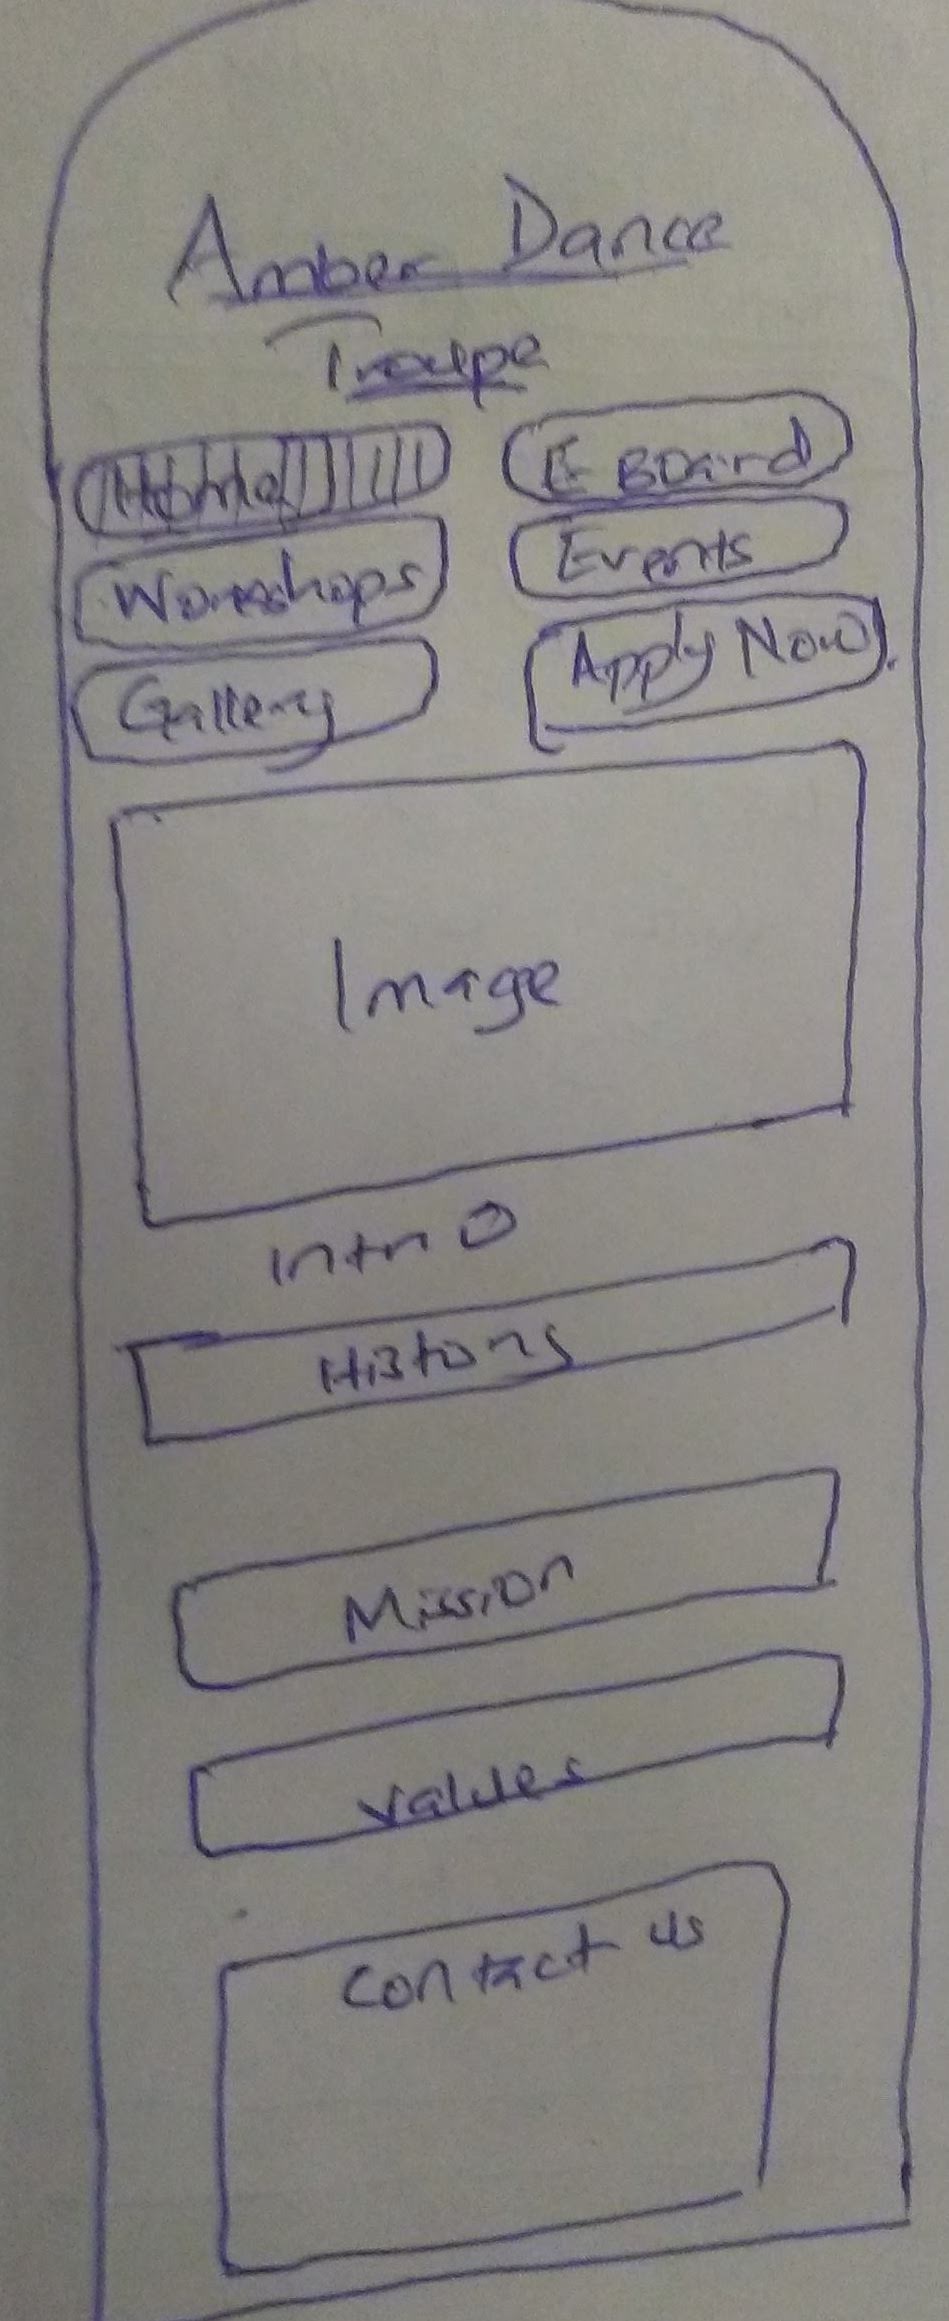 Amber Dance
Troupe
Home
E-Board
Workshops
Events
Gallery
Apply Now
Image
Intro
History
Mission
Values
Contact us